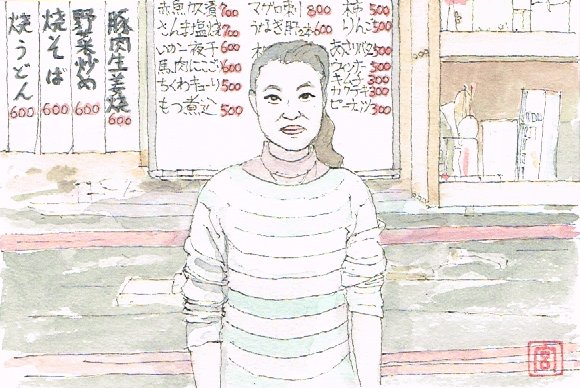 豚肉生姜焼 600
野菜炒め 600
焼そば 600
焼うどん 600
赤魚カス煮 700
さんま塩焼 700
いか一夜干 600
馬肉にこごり 600
ちくわキューリ 500
もつ煮込 500
マグロ刺 800
うなぎ肝 600
柿 500
りんご 500
500
ウインナー 500
キムチ 300
カクテキ 300
ピーナッツ 300
宮